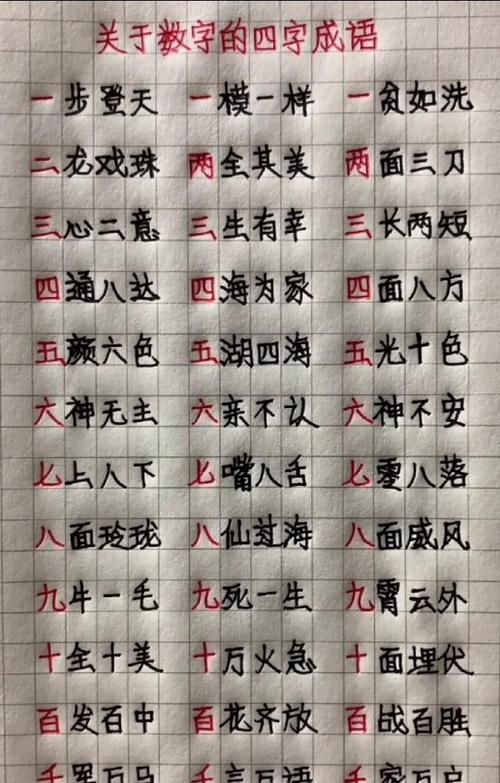 关于数字的四字成语
一步登天 一模一样 一贫如洗
二龙戏珠 两全其美 两面三刀
三心二意 三生有幸 三长两短
四通八达 四海为家 四面八方
五颜六色 五湖四海 五光十色
六神无主 六亲不认 六神不安
七上八下 七嘴八舌 七零八落
八面玲珑 八仙过海 八面威风
九牛一毛 九死一生 九霄云外
十全十美 十万火急 十面埋伏
百发百中 百花齐放 百战百胜
千军万马 千言万语 千家万户